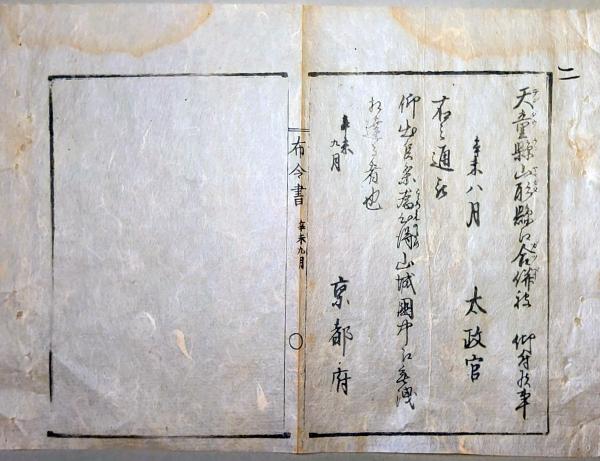 二
天童縣山形縣江合併被 仰付候事
辛未八月 太政官
右之通被
仰出候条為心得山城國中江無洩
相達る者也
辛未
九月
京都府
布令書 辛未九月